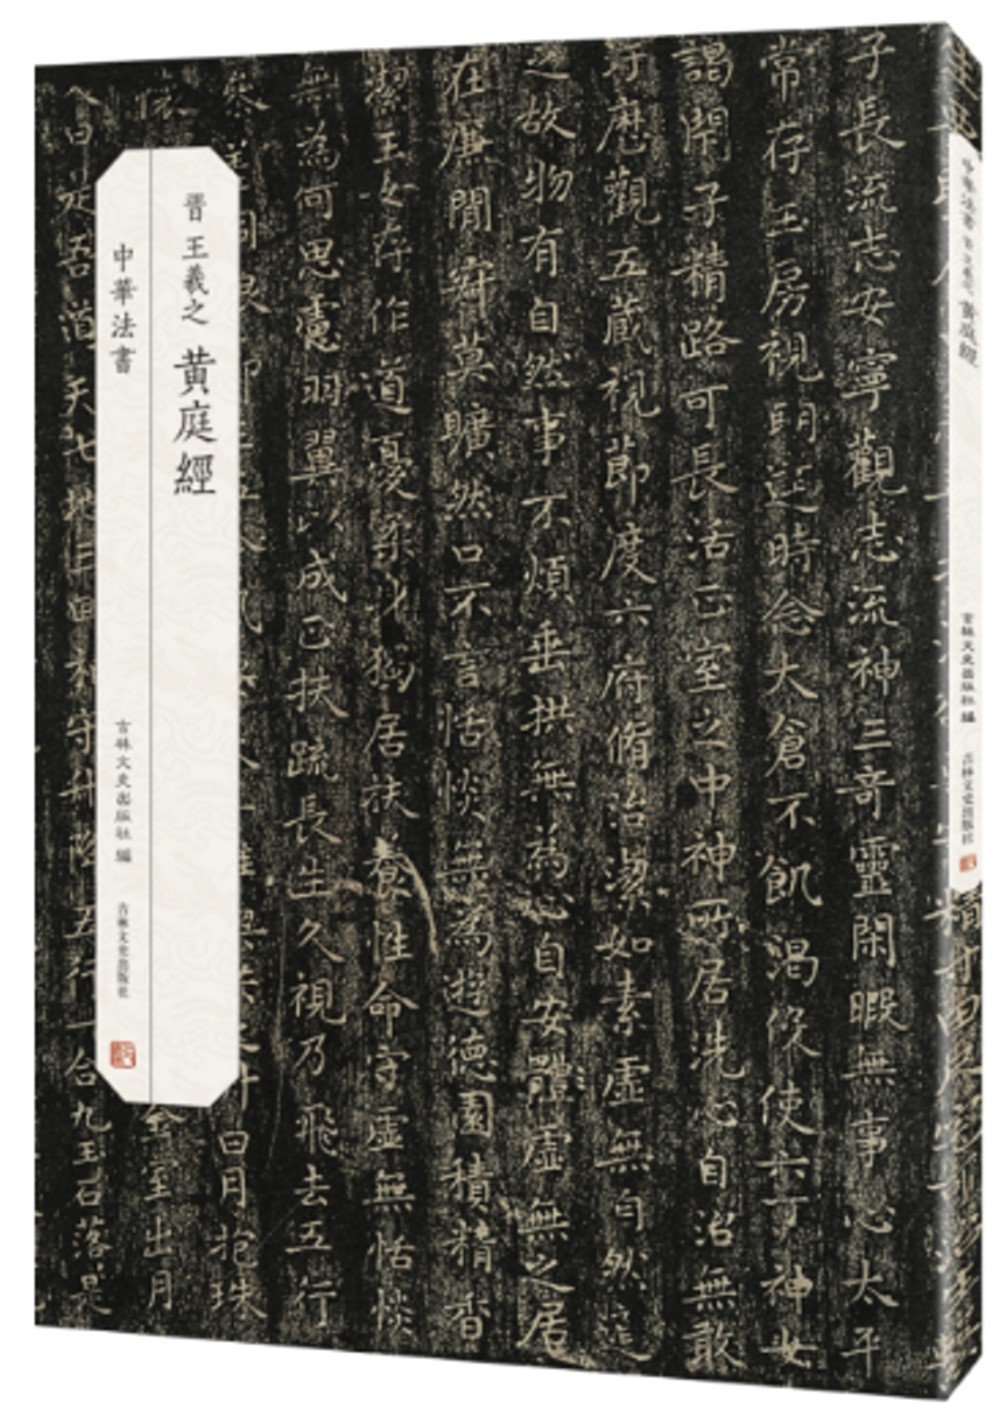 晋 王羲之 黄庭經
中華法書
吉林文史出版社 編
吉林文史出版社
中華法書 晋 王羲之 黄庭經
吉林文史出版社 編
吉林文史出版社
子長流志安寧觀志流神三奇靈閑暇無事心太平
常存玉房視明達時念大倉不飢渴役使六丁神女
謁閉子精路可長活正室之中神所居洗心自治無敢
歷觀五藏視節度六府脩治潔如素虛無自然道
之故物有自然事不煩垂拱無為心自安體虛無之居
在廉間寂莫曠然口不言恬惔無為遊德園積精香
潔玉女存作道憂柔身獨居扶養性命守虛無恬惔
無為何思慮羽翼以成正扶疏長生久視乃飛去五行
日月抱珠
至出月
合九玉石落是